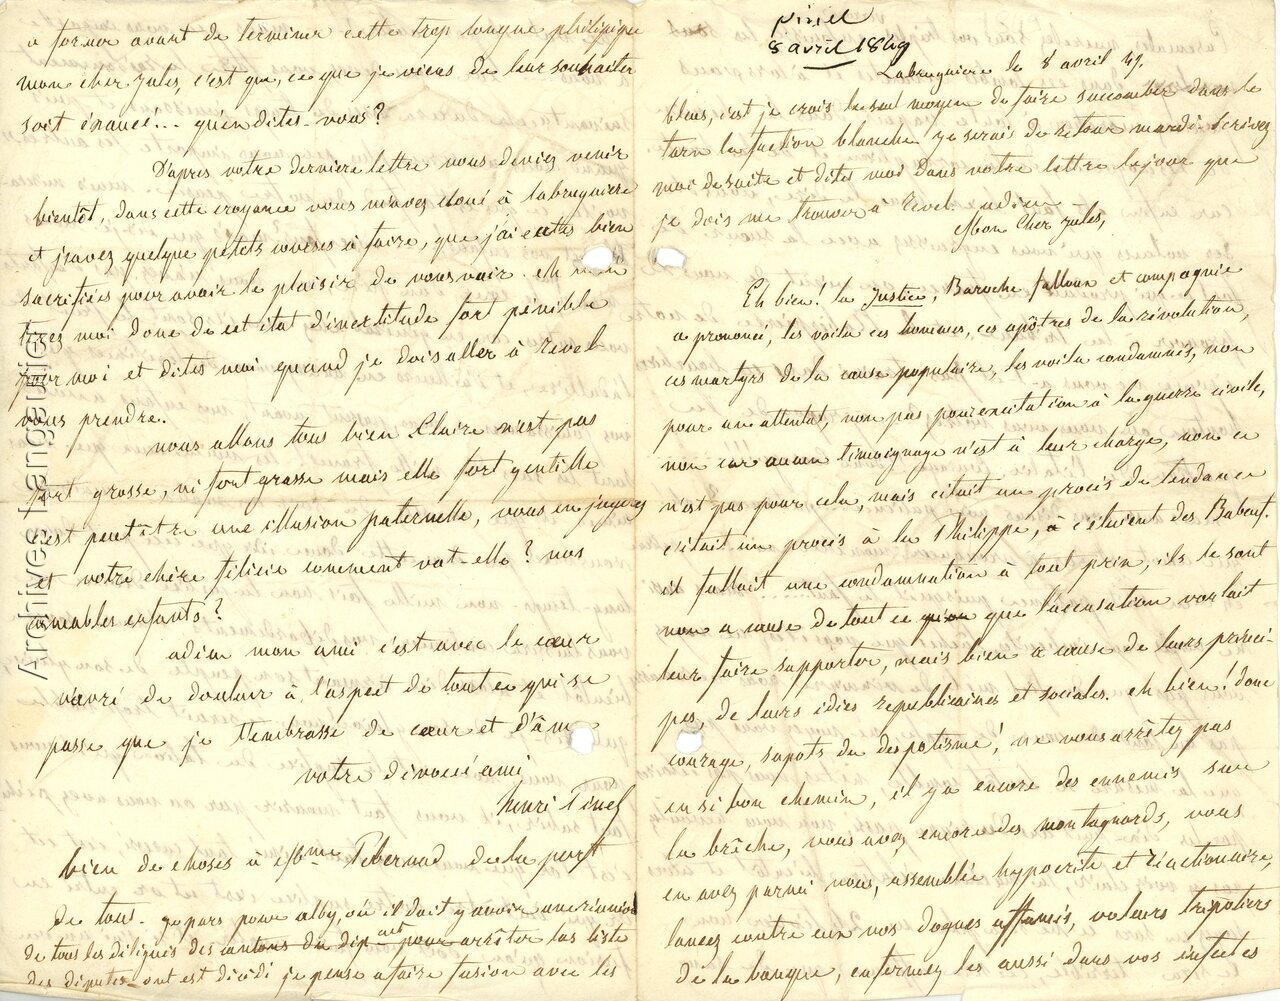 pinel
8 avril 1849
Labruguiere le 8 avril 49.
bleus, c'est je crois le seul moyen de faire succomber dans le
tarn la faction blanche. je serai de retour mardi. Ecrivez
moi de suite et dites moi dans votre lettre le jour que
je dois me trouver à Revel. adieu
Mon cher jules,
Eh bien! la justice, Baroche, falloux et compagnie
a prononcé, les voila ces hommes, ces apôtres de la révolution,
ces martyrs de la cause populaire, les voila condamnés, non
pour un attentat, non pas pour excitation à la guerre civile,
non car aucun témoignage n'est à leur charge, non ce
n'est pas pour cela, mais c'était un procès de tendance
c'était un procès à la Philippe, à c'étaient des Babeuf.
il fallait une condamnation à tout prix, ils le sont
non a cause de tout ce que l'accusation voulait
leur faire supporter, mais bien a cause de leurs princi-
pes, de leurs idées republicaines et sociales. eh bien! donc
courage, supots du despotisme! ne vous arrêtez pas
en si bon chemin, il y a encore des ennemis sur
la brêche, vous avez encore des montagnards, vous
en avez parmi vous, assemblée hypocrite et réactionaire,
lancez contre eux vos dogues affamés, voleurs tripotiers
de la banque, enfermez les aussi dans vos infectes
a former avant de terminer cette trop longue philipique
mon cher jules, c'est que, ce que je viens de leur souhaiter
soit exaucé... qu'en dites-vous?
D'après votre derniere lettre vous deviez venir
bientôt, dans cette croyance vous m'avez cloué à labruguiere
et j'avez quelque petits courses à faire, que j'ai certes bien
sacrifiées pour avoir le plaisir de vous voir. eh bien
tirez moi donc de cet état d'incertitude fort pénible
pour moi et dites moi quand je dois aller à revel
vous prendre.
nous allons tous bien Claire n'est pas
fort grosse, ni fort grasse mais elle fort gentille
c'est peut être une illusion paternelle, vous en jugerez
et votre chère filicie comment vat-elle? vos
aimables enfants?
adieu mon ami c'est avec le cœur
navré de douleur à l'aspect de tout ce qui se
passe que je t'embrasse de cœur et d'âme
votre dévoué ami
henri Pinel
bien de choses à Mme Pebernad de la part
de tous. je pars pour alby, où il doit y avoir une réunion
de tous les déligués des cantons du dépact pour arrêter las liste
des députés ont est décidé je pense a faire fusion avec les
Archives Languedoc